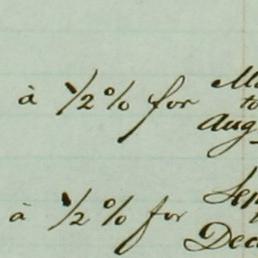 à ½% for
to
Aug
à ½% for
Dec